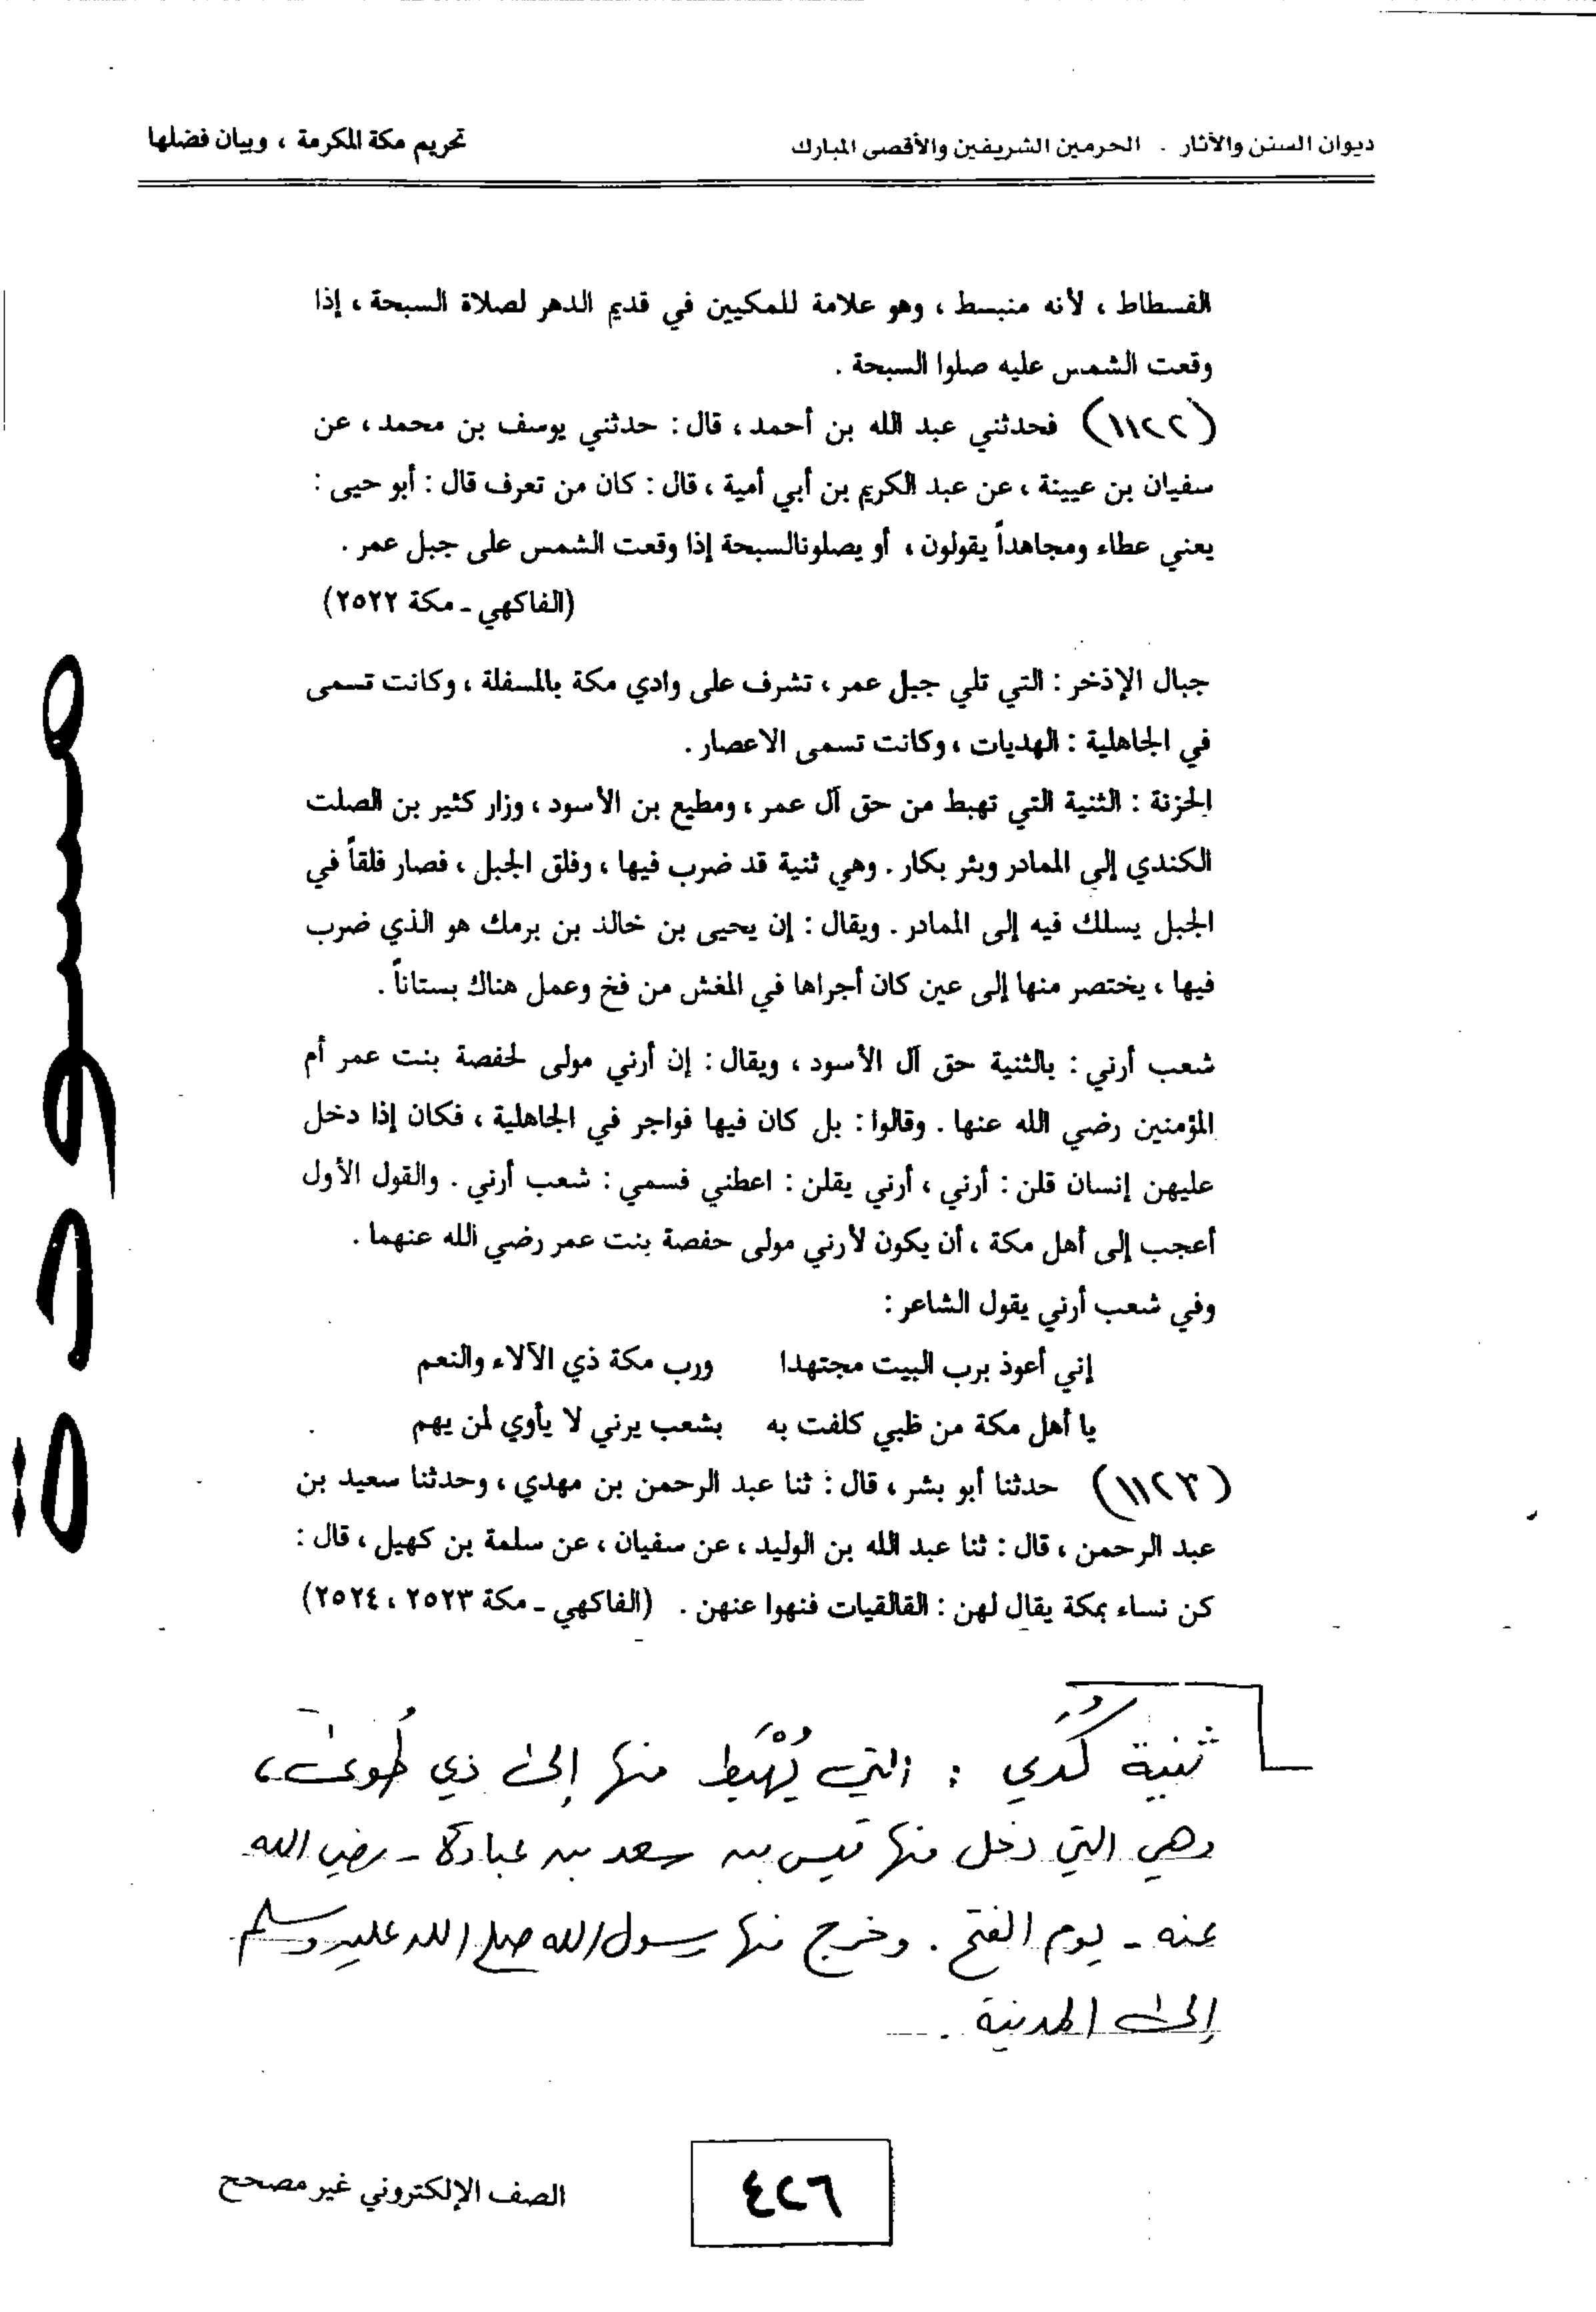 ديوان السنن والآثار . الحرمين الشريفين والأقصى المبارك
تحريم مكة المكرمة ، وبيان فضلها
الفسطاط ، لأنه منبسط ، وهو علامة للمكيين في قديم الدهر لصلاة السبحة ، إذا
وقعت الشمس عليه صلوا السبحة .
(١١٢٢) فحدثني عبد الله بن أحمد ، قال : حدثني يوسف بن محمد ، عن
سفيان بن عيينة ، عن عبد الكريم بن أبي أمية ، قال : كان من تعرف قال : أبو حيى :
يعني عطاء ومجاهداً يقولون ، أو يصلونالسبحة إذا وقعت الشمس على جبل عمر .
(الفاكهي ـ مكة ٢٥٢٢)
جبال الإذخر : التي تلي جبل عمر ، تشرف على وادي مكة بالمسفلة ، وكانت تسمى
في الجاهلية : الهديات ، وكانت تسمى الاعصار .
الحزنة : الثنية التي تهبط من حق آل عمر ، ومطيع بن الأسود ، وزار كثير بن الصلت
الكندي إلى الممادر وبئر بكار . وهي ثنية قد ضرب فيها ، وفلق الجبل ، فصار فلقاً في
الجبل يسلك فيه إلى الممادر . ويقال : إن يحيى بن خالد بن برمك هو الذي ضرب
فيها ، يختصر منها إلى عين كان أجراها في المغش من فخ وعمل هناك بستاناً .
شعب أرني : بالثنية حق آل الأسود ، ويقال : إن أرني مولى لحفصة بنت عمر أم
المؤمنين رضي الله عنها . وقالوا : بل كان فيها فواجر في الجاهلية ، فكان إذا دخل
عليهن إنسان قلن : أرني ، أرني يقلن : اعطني فسمي : شعب أرني . والقول الأول
أعجب إلى أهل مكة ، أن يكون لأرني مولى حفصة بنت عمر رضي الله عنهما .
وفي شعب أرني يقول الشاعر :
إني أعوذ برب البيت مجتهدا ورب مكة ذي الآلاء والنعم
يا أهل مكة من ظبي كلفت به بشعب يرني لا يأوي لمن يهم
(١١٢٣) حدثنا أبو بشر ، قال : ثنا عبد الرحمن بن مهدي ، وحدثنا سعيد بن
عبد الرحمن ، قال : ثنا عبد الله بن الوليد ، عن سفيان ، عن سلمة بن كهيل ، قال :
كن نساء بمكة يقال لهن : القالقيات فنهوا عنهن . (الفاكهي ـ مكة ٢٥٢٣ ، ٢٥٢٤)
ثنية كُدَي : التي يُهْبَط منها إلى ذي طُوى ،
وهي التي دخل منها قيس بن سعد بن عبادة - رضي الله
عنه - يوم الفتح . وخرج منها رسول الله صلى الله عليه وسلم
إلى المدينة .
٤٢٦
الصف الإلكتروني غير مصحح
مسودة